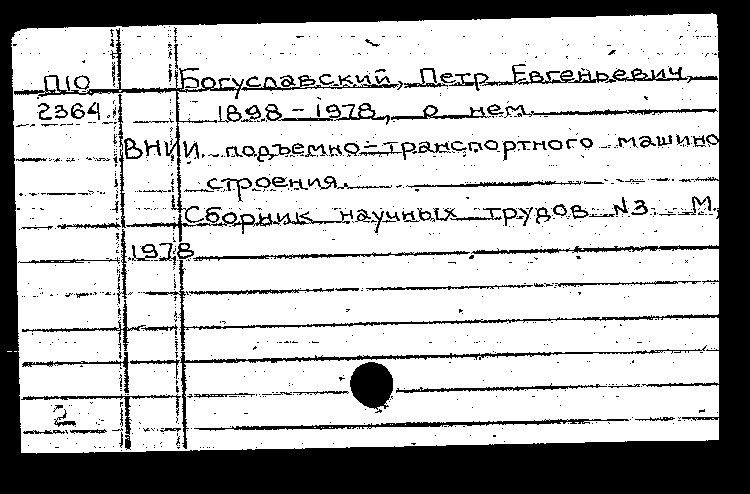 П10 Богуславский, Петр Евгеньевич,
2364 1898-1978, о нем.
ВНИИ подъемно-транспортного машино
строения.
Сборник научных трудов №3 М,
1978
2